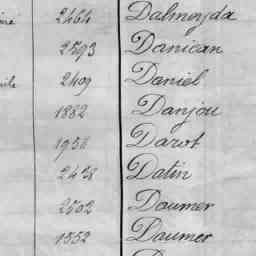 2464 Dalmeyda
2593 Danican
2409 Daniel
1882 Danjou
1958 Darot
2438 Datin
2502 Daumer
1552 Daumer